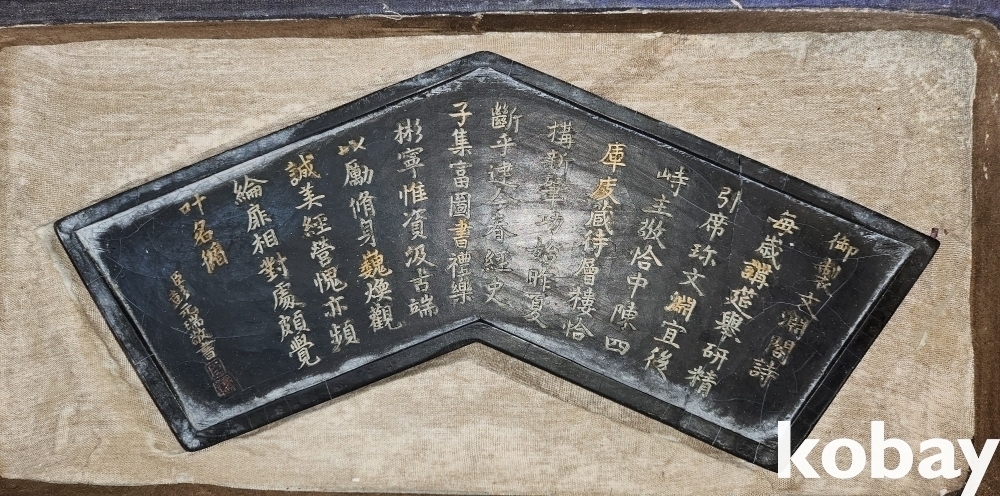 御製文淵閣詩
每歲講筵舉研精
引席珍文淵宜後
峙主敬恰中陳四
庫庋藏待層樓恰
構新肇功始昨夏
斷手逮今春經史
子集富圖書禮樂
彬寧惟資汲古端
以勵脩身巍煥觀
誠美經營愧亦頻
綸扉相對處頗覺
叶名循
臣彭元瑞敬書
kobay